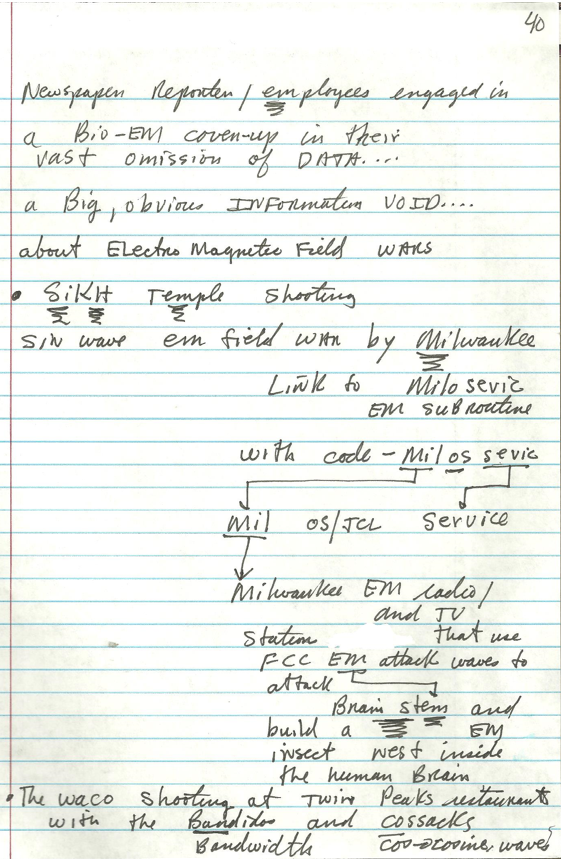 40
Newspaper Reporter / employees engaged in
a Bio-EM cover-up in their
vast omission of DATA....
a Big, obvious INFormation VOID....
about Electro Magnetic Field WARS
• SiKH Temple Shooting
Sin wave em field war by Milwaukee
Link to Milo sevic
EM subroutine
with code - Mil os sevic
Mil OS/JCL Service
Milwaukee EM radio/
and TV
Station that use
FCC EM attack waves to
attack
Brain stem and
build a EM
insect nest inside
the human Brain
• The waco shooting at Twin Peaks restaurants
with the Bandidos and cossacks
Bandwidth cos-cosine waves